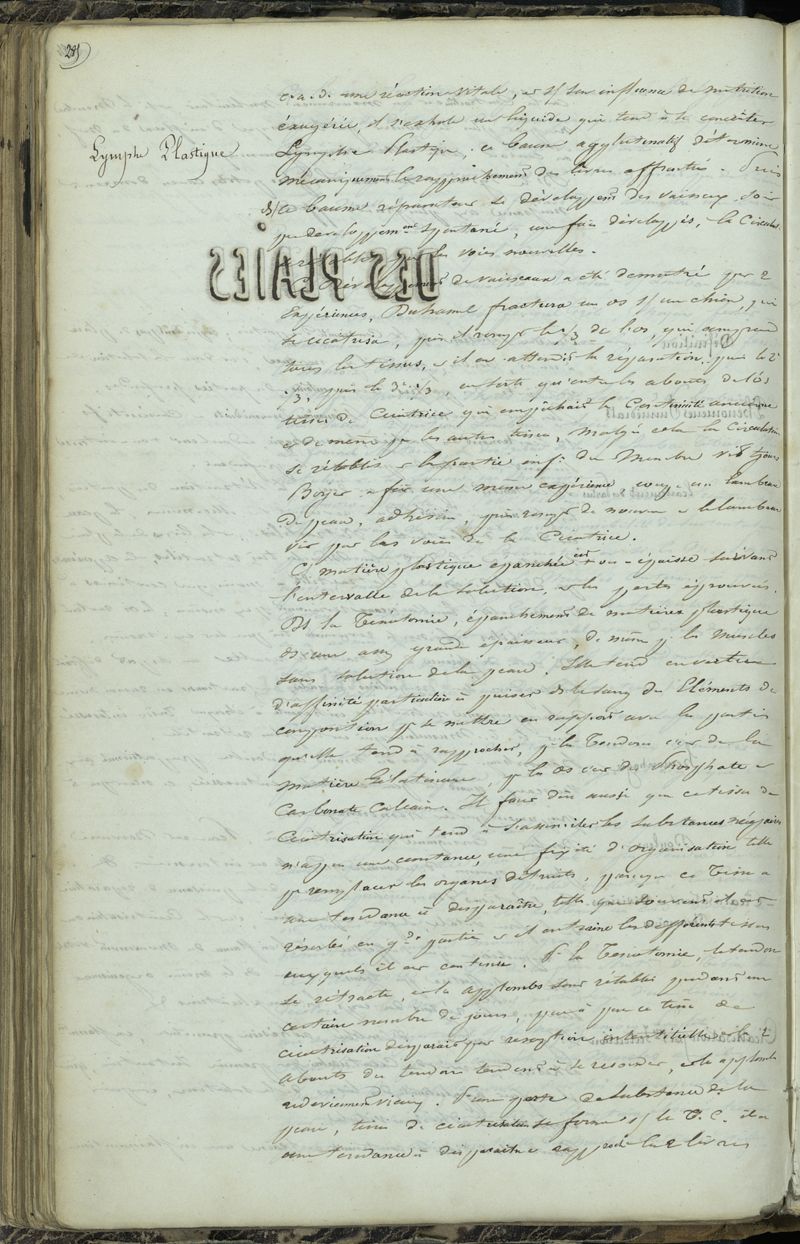 281
c. a. d. une réaction vitale, et s/ son influence de nutrition
exagérée, il s'exhale un liquide qui tend à le concréter
Lymphe Plastique
Lymphe Plastique. ce baume agglutinatif détermine
mécaniquement le rapprochement des lèvres affrontées. Puis
ds/ ce baume réparateur se développent des vaisseaux, soit
par developpement spontané, une fois développés, la Circulat.
se rétablit par les voies nouvelles.
DES PLAIES
Ce développement de vaisseaux a été démontré par 2
Expériences, Duhamel fractura un os s/ un chien, qui
se cicatrisa, puis il rompt le 1/3 de l'os, qui comprend
tous les tissus, et il en attendit la réparation, puis le 2e
1/3, puis le 3e 1/3, en sorte qu'entre les abouts de l'os
tissu de Cicatrice qui empêchait la Continuité ancienne
et de même pr les autres tissus, Malgré cela la Circulation
se rétablit et la partie inf. du Membre vit tjours
Boyer a fait une même expérience, coupe un lambeau
de peau, adhésion, puis rompt de nouveau et le lambeau
vit par les voies de la Cicatrice.
C. matière plastique épanchée est + ou - épaisse suivant
l'intervalle de la solution, et les pertes éprouvées.
Ds la Ténotomie, épanchement de matières plastique
ds une assez grande épaisseur, de même pr les Muscles
sans solution de la peau. Elle tend en vertu
d'affinité particulière à puiser ds le sang des Eléments de
composition pr se mettre en rapport avec les parties
qu'elle tend à rapprocher, pr les Tendons c'est de la
matière Gélatineuse, pr les os c'est des Phosphate et
Carbonate Calcaire. Il faut dire aussi que ce tissu de
Cicatrisation qui tend à s'assimiler les substances nécessaires
n'a pas une constance, une fixité d'organisation telle
pr remplacer les organes détruits, parceque ce Tissu a
une tendance à disparaître, telle que souvent il est
résorbé en gde partie et il entraîne les différents tissus
auxquels il est continu. Ds la Ténotomie, le tendon
se rétracte, et les applombs sont rétablis pendant un
certain nombre de jours, peu à peu ce tissu de
cicatrisation disparait par résorption interstitielle et les 2
abouts du tendon tendent à se ressouder, et les applombs
redeviennent vicieux. Ds une perte de substance de la
peau, tissu de cicatrisation se forme s/ le T. C. il a
une tendance à disparaître rapproche les 2 lèvres